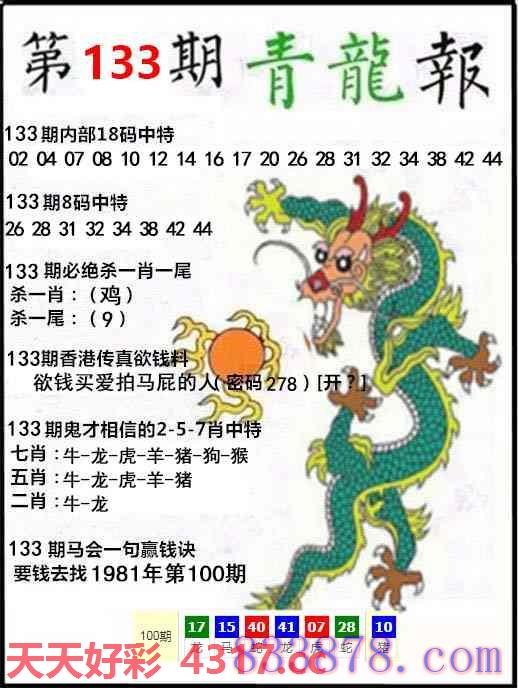 第133期青龍報
133期内部18码中特
02 04 07 08 10 12 14 16 17 20 26 28 31 32 34 38 42 44
133期8码中特
26 28 31 32 34 38 42 44
133期必绝杀一肖一尾
杀一肖：（鸡）
杀一尾：（9）
133期香港传真欲钱料
欲钱买爱拍马屁的人(密码278)[开？]
133期鬼才相信的2-5-7肖中特
七肖：牛-龙-虎-羊-猪-狗-猴
五肖：牛-龙-虎-羊-猪
二肖：牛-龙
133期马会一句赢钱诀
要钱去找1981年第100期
100期 17 15 40 41 07 28 10
龙 马 蛇 龙 虎 蛇 猪
天天好彩 4317.cc
838878.com